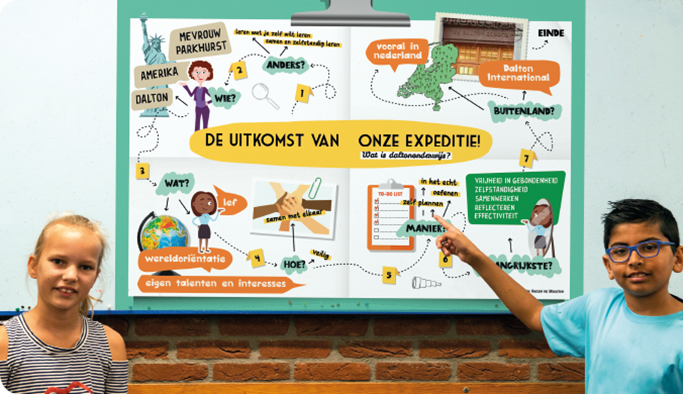 leren wat je zelf wilt leren
samen en zelfstandig leren
MEVROUW
PARKHURST
ANDERS?
AMERIKA
DALTON
WIE?
2
1
vooral in
nederland
EINDE
Dalton
International
BUITENLAND?
DE UITKOMST VAN ONZE EXPEDITIE!
Wat is daltononderwijs?
3
WAT?
lef
wereldoriëntatie
eigen talenten en interesses
4
samen met elkaar
HOE?
veilig
5
TO-DO LIST
in het echt
oefenen
zelf plannen
MANIER?
6
7
VRIJHEID IN GEBONDENHEID
ZELFSTANDIGHEID
SAMENWERKEN
REFLECTEREN
EFFECTIVITEIT
NGRIJKSTE?